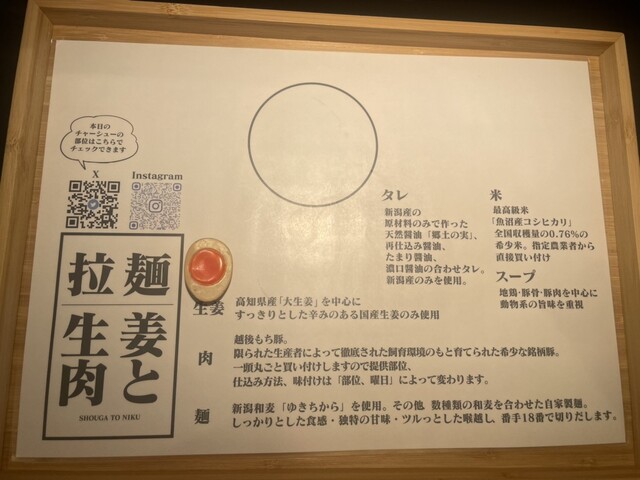 本日の
チャーシューの
部位はこちらで
チェックできます
X
Instagram
拉麺
生姜と肉
SHOUGA TO NIKU
タレ
新潟産の
原材料のみで作った
天然醤油「郷土の実」、
再仕込み醤油、
たまり醤油、
濃口醤油の合わせタレ。
新潟産のみを使用。
米
最高級米
「魚沼産コシヒカリ」
全国収穫量の0.76%の
希少米。指定農業者から
直接買い付け
スープ
地鶏・豚骨・豚肉を中心に
動物系の旨味を重視
生姜
高知県産「大生姜」を中心に
すっきりとした辛みのある国産生姜のみ使用
肉
越後もち豚。
限られた生産者によって徹底された飼育環境のもと育てられた希少な銘柄豚。
一頭丸ごと買い付けしますので提供部位、
仕込み方法、味付けは「部位、曜日」によって変わります。
麺
新潟和麦「ゆきちから」を使用。その他 数種類の和麦を合わせた自家製麺。
しっかりとした食感・独特の甘味・ツルっとした喉越し、番手18番で切りだします。